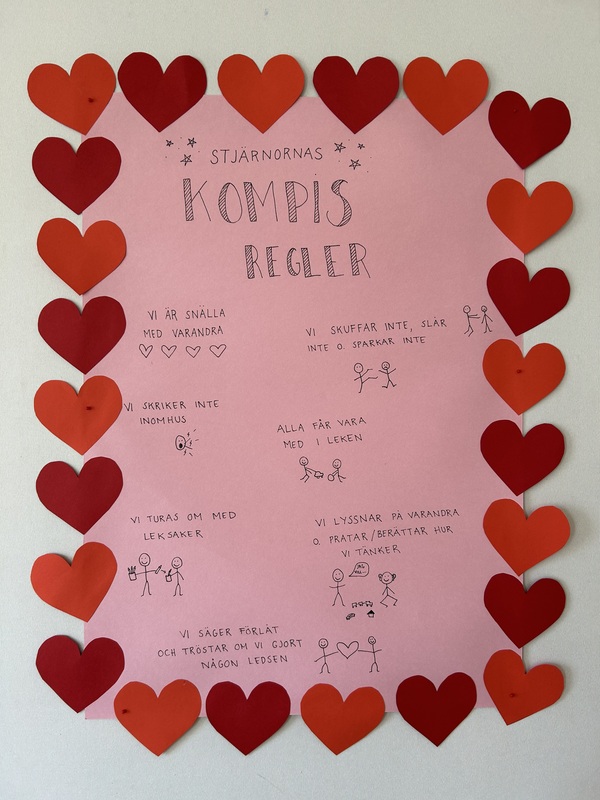 STJÄRNORNAS
KOMPIS
REGLER
VI ÄR SNÄLLA
MED VARANDRA
VI SKUFFAR INTE, SLÅR
INTE O. SPARKAR INTE
VI SKRIKER INTE
INOMHUS
ALLA FÅR VARA
MED I LEKEN
VI TURAS OM MED
LEKSAKER
VI LYSSNAR PÅ VARANDRA
O. PRATAR/BERÄTTAR HUR
VI TÄNKER
VI SÄGER FÖRLÅT
OCH TRÖSTAR OM VI GJORT
NÅGON LEDSEN